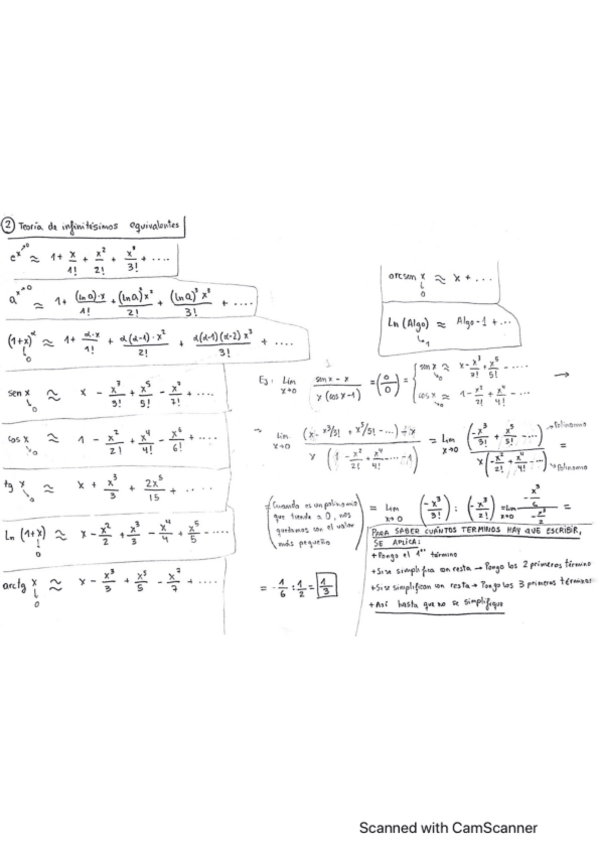 ② Teoría de infinitésimos equivalentes
e^x→0 ≈ 1 + x/1! + x²/2! + x³/3! + ....
a^x→0 ≈ 1 + (Ln a)·x/1! + (Ln a)²x²/2! + (Ln a)³x³/3! + ....
(1+x)^α ≈ 1 + α·x/1! + α(α-1)·x²/2! + α(α-1)(α-2)x³/3! + ....
↳0
sen x ≈ x - x³/3! + x⁵/5! - x⁷/7! + ....
↳0
cos x ≈ 1 - x²/2! + x⁴/4! - x⁶/6! + ....
↳0
tg x ≈ x + x³/3 + 2x⁵/15 + ....
↳0
Ln (1+x) ≈ x - x²/2 + x³/3 - x⁴/4 + x⁵/5 - ....
↓0
arctg x ≈ x - x³/3 + x⁵/5 - x⁷/7 + ....
↳0
arcsen x ≈ x + ...
↳0
Ln (Algo) ≈ Algo - 1 + ...
↳1
Ej: Lim x→0 (sen x - x)/(x (cos x - 1)) = (0/0) =
sen x ≈ x - x³/3! + x⁵/5! - ....
↳0
cos x ≈ 1 - x²/2! + x⁴/4! - ....
↳0
→
→ Lim x→0 (x - x³/3! + x⁵/5! - ...) - x / x (1 - x²/2! + x⁴/4! - .... - 1) = Lim x→0 (-x³/3! + x⁵/5! - ...) → Polinomio / x(-x²/2! + x⁴/4! - ...) → Polinomio =
= (Cuando es un polinomio
que tiende a 0, nos
quedamos con el valor
más pequeño)
= Lim x→0 (-x³/3!) : (-x³/2!) = Lim x→0 (-x³/6)/(-x³/2) =
= -1/6 : 1/2 = 1/3
PARA SABER CUÁNTOS TÉRMINOS HAY QUE ESCRIBIR,
SE APLICA:
+ Pongo el 1er término
+ Si se simplifica con resta → Pongo los 2 primeros término
+ Si se simplifican con resta → Pongo los 3 primeros términos
+ Así hasta que no se simplifique
Scanned with CamScanner